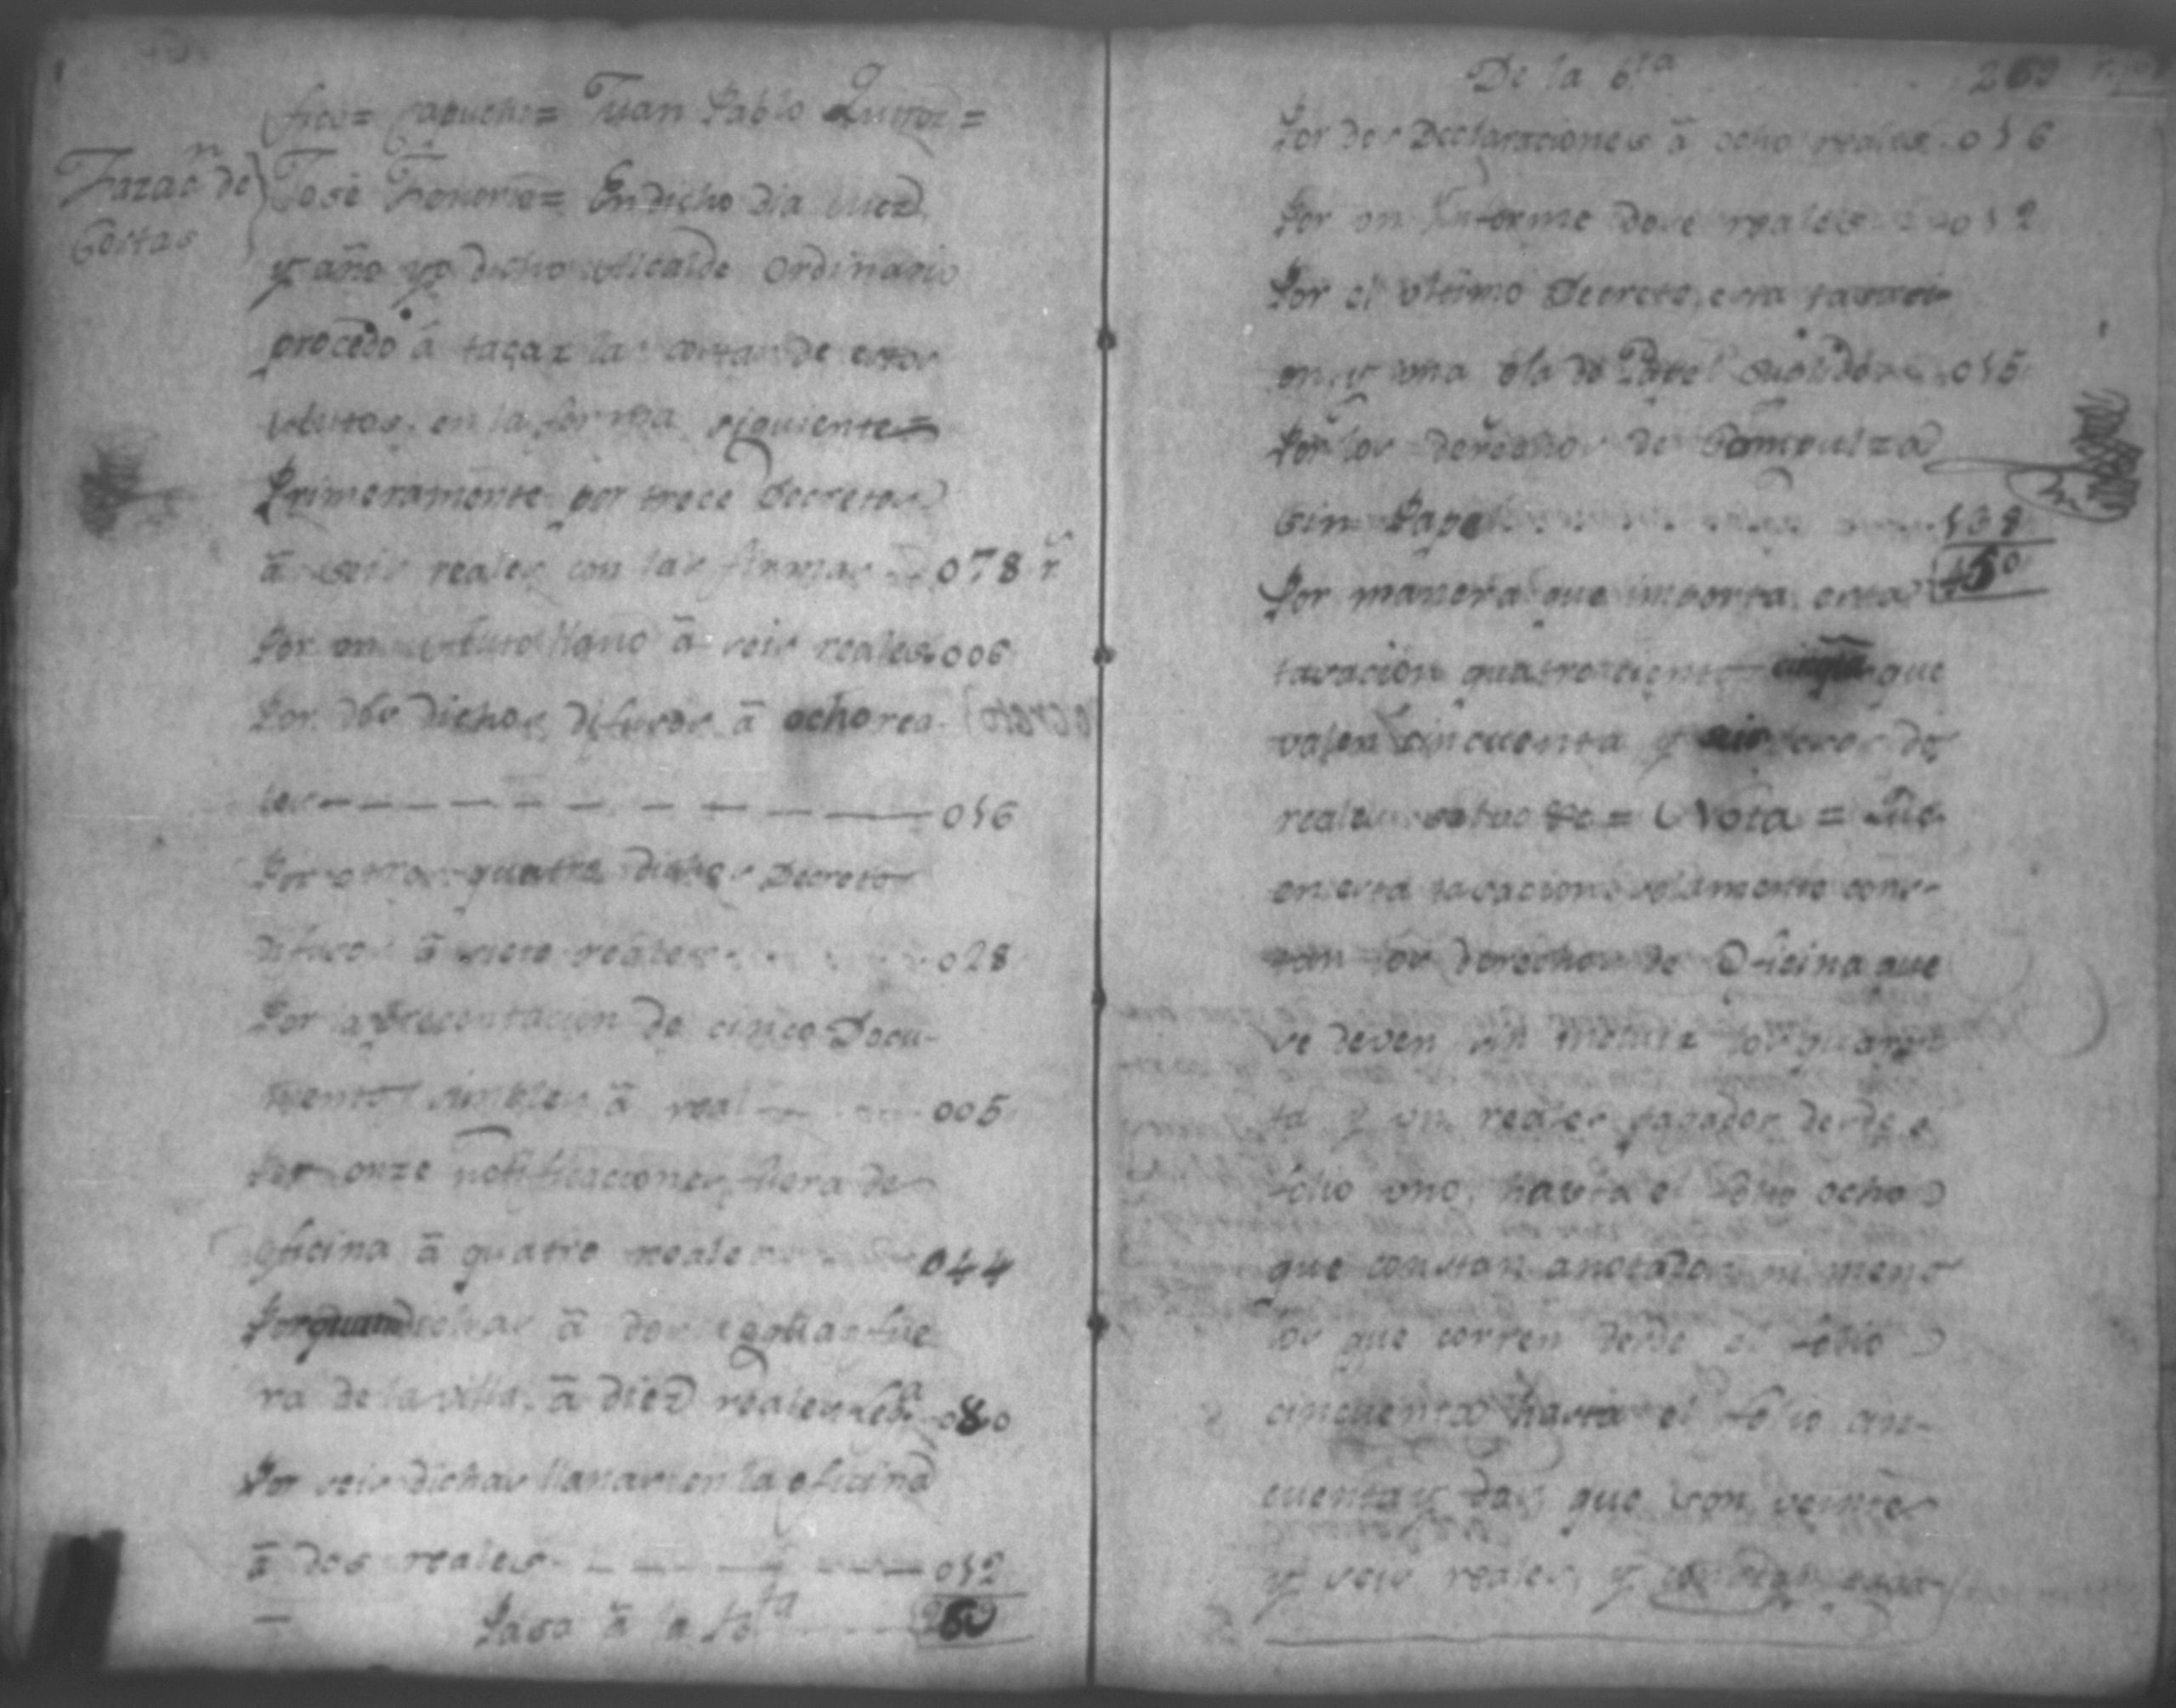 fico= Capucho= Juan Pablo Quiroz=
Tazac.n de
Costas
José Tenorio= En dicho dia mez
y año yo dicho Alcalde ordinario
procedo á taçaz las costas de estos
Autos, en la forma siguiente=
Primeramente por trece Decretos
â seis reales con las firmas 078 r.s
Por un llano â seis reales 006
Por dos dichos difusos â ocho rea-
les 016
Por otros quatro dichos Decretos
difusos â siete reales 028
Por la precentacion de cinco Docu-
mentos simples â real 005
Por onze notificaciones fuera de
oficina â quatro reales 044
Por â dos leguas fue
ra de la villa, â diez reales leg.a 080
Por seis dichas llanas en la oficina
â dos reales 012
Pasa â la
De la
Por dos Declaraciones â ocho reales 016
Por un Informe doce reales 012
Por el ultimo Decreto, esta tasaci-
on, y una de Papel suplido 015
Por los derechos de Compulza
sin Papel
Por manera que importa esta 450
tasacion quatrocientos que
valen cincuenta y pesos dos
reales salvo = Nota = Que
en esta tasacion solamente cons-
tan los derechos de Oficina que
se deven sin incluiz los quaren
ta y un reales pagados desde el
folio uno, hasta el folio ocho
que constan anotados ni menos
los que corren desde el folio
cincuenta hasta el folio cin-
cuenta y dos, que son veinte
y seis reales, y